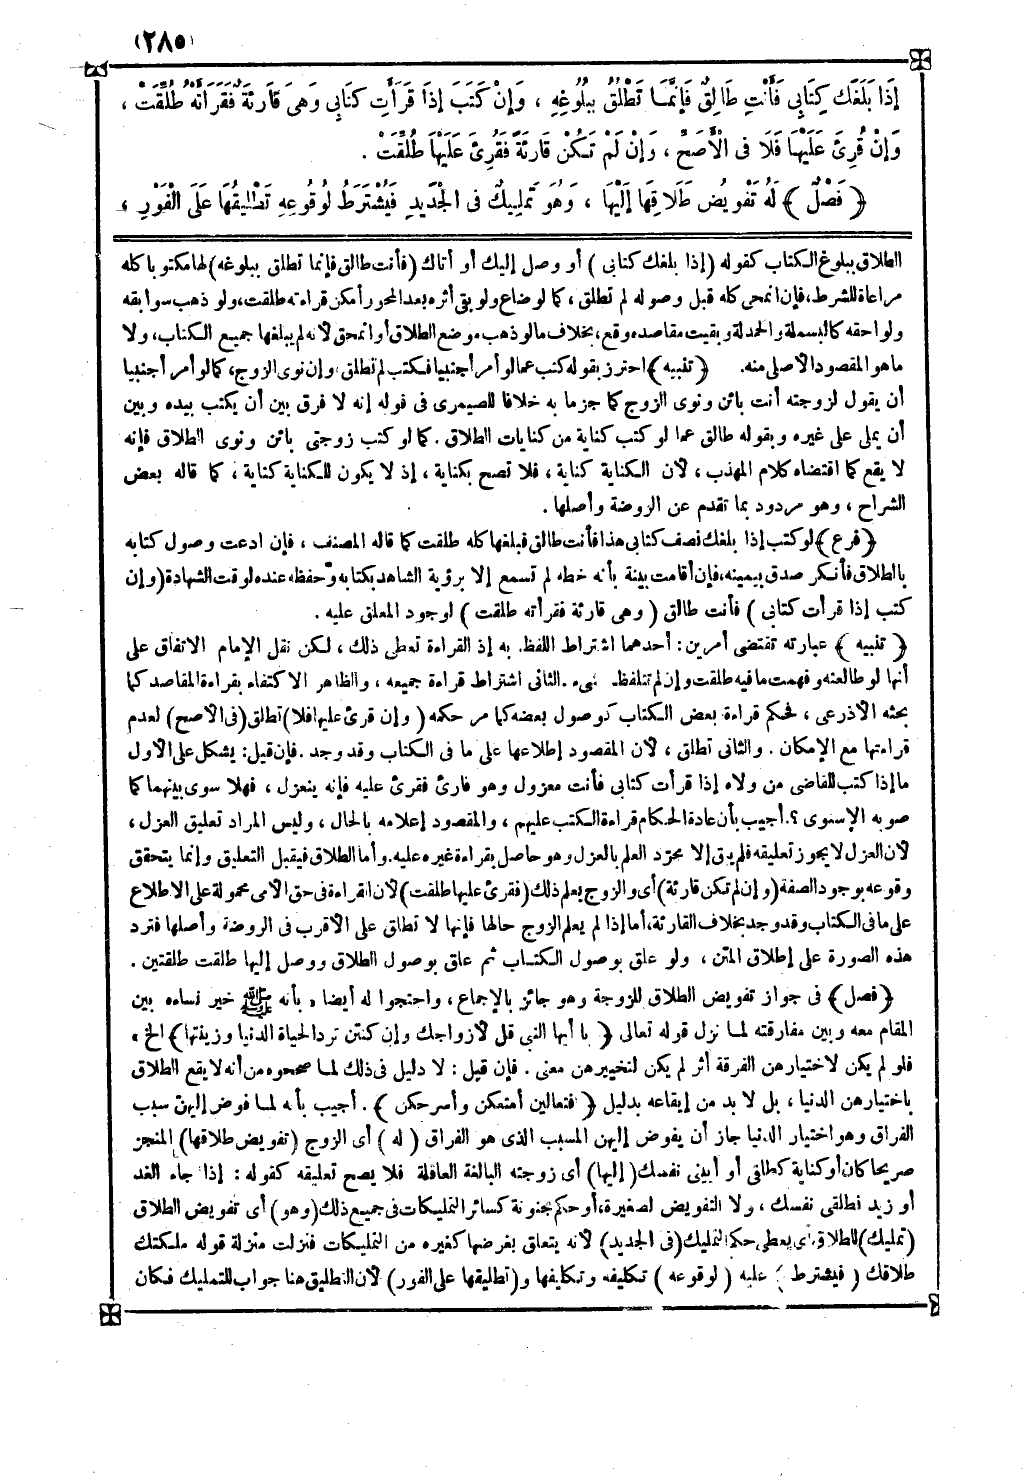 (٢٨٥)
إِذَا بَلَغَكِ كِتَابِى فَأَنْتِ طَالِقٌ فَإِنَّمَا تَطْلُقُ بِبُلُوغِهِ ، وَإِنْ كَتَبَ إِذَا قَرَأْتِ كِتَابِى وَهِىَ قَارِئَةٌ فَقَرَأَتْهُ طَلُقَتْ ،
وَإِنْ قُرِئَ عَلَيْهَا فَلَا فِى الْأَصَحِّ ، وَإِنْ لَمْ تَكُنْ قَارِئَةً فَقُرِئَ عَلَيْهَا طَلُقَتْ .
﴿ فَصْلٌ ﴾ لَهُ تَفْوِيضُ طَلَاقِهَا إِلَيْهَا ، وَهُوَ تَمْلِيكٌ فِى الْجَدِيدِ فَيُشْتَرَطُ لِوُقُوعِهِ تَطْلِيقُهَا عَلَى الْفَوْرِ ،
الطلاق ببلوغ الكتاب كقوله (إذا بلغك كتابى ) أو وصل إليك أو أتاك (فأنت طالق فإنما تطلق ببلوغه) لها مكتوبا كله
مراعاة للشرط، فإن انمحى كله قبل وصوله لم تطلق ، كما لو ضاع ولو بقى أثره بعد المحو وأمكن قراءته طلقت، ولو ذهب سوابقه
ولواحقه كالبسملة والحمدلة وبقيت مقاصده وقع، بخلاف مالو ذهب موضع الطلاق أو انمحق لأنه لم يبلغها جميع الكتاب، ولا
ما هو المقصود الأصلى منه. ﴿ تنبيه ﴾ احترز بقوله كتب عما لو أمر أجنبيا فكتب لم تطلق ، وإن نوى الزوج، كما لو أمر أجنبيا
أن يقول لزوجته أنت بائن ونوى الزوج كما جزما به خلافا للصيمرى فى قوله إنه لا فرق بين أن يكتب بيده وبين
أن يملى على غيره وبقوله طالق عما لو كتب كناية من كنايات الطلاق . كما لو كتب زوجتى بائن ونوى الطلاق فإنه
لا يقع كما اقتضاه كلام المهذب، لأن الكناية كناية ، فلا تصح بكناية ، إذ لا يكون للكناية كناية ، كما قاله بعض
الشراح ، وهو مردود بما تقدم عن الروضة وأصلها .
﴿ فرع ﴾ لو كتب إذا بلغك نصف كتابى هذا فأنت طالق فبلغها كله طلقت كما قاله المصنف ، فإن ادعت وصول كتابه
بالطلاق فأنكر صدق بيمينه، فإن أقامت بينة بأنه خطه لم تسمع إلا برؤية الشاهد بكتابه وحفظه عنده لوقت الشهادة (وإن
كتب إذا قرأت كتابى ) فأنت طالق ( وهى قارئة فقرأته طلقت ) لوجود المعلق عليه .
﴿ تنبيه ﴾ عبارته تقتضى أمرين : أحدهما اشتراط اللفظ به إذ القراءة تعطى ذلك ، لكن نقل الإمام الاتفاق على
أنها لو طالعته وفهمت ما فيه طلقت وإن لم تتلفظ بشىء . الثانى اشتراط قراءة جميعه ، والظاهر الاكتفاء بقراءة المقاصد كما
بحثه الأذرعى ، فحكم قراءة بعض الكتاب كوصول بعضه كما مر حكمه ( وإن قرئ عليها فلا) تطلق (فى الأصح ) لعدم
قراءتها مع الإمكان . والثانى تطلق ، لأن المقصود إطلاعها على ما فى الكتاب وقد وجد . فإن قيل: يشكل على الأول
ما إذا كتب للقاضى من ولاه إذا قرأت كتابى فأنت معزول وهو قارئ فقرئ عليه فإنه ينعزل ، فهلا سوى بينهما كما
صوبه الإسنوى ؟. أجيب بأن عادة الحكام قراءة الكتب عليهم ، والمقصود إعلامه بالحال ، وليس المراد تعليق العزل ،
لأن العزل لا يجوز تعليقه فلم يبق إلا مجرّد العلم بالعزل وهو حاصل بقراءة غيره عليه. وأما الطلاق فيقبل التعليق وإنما يتحقق
وقوعه بوجود الصفة (وإن لم تكن قارئة) أى والزوج يعلم ذلك (فقرئ عليها طلقت) لأن القراءة فى حق الأمى محمولة على الاطلاع
على ما فى الكتاب وقد وجد بخلاف القارئة، أما إذا لم يعلم الزوج حالها فإنها لا تطلق على الأقرب فى الروضة وأصلها فترد
هذه الصورة على إطلاق المتن ، ولو علق بوصول الكتاب ثم علق بوصول الطلاق ووصل إليها طلقت طلقتين .
﴿ فصل ﴾ فى جواز تفويض الطلاق للزوجة وهو جائز بالإجماع ، واحتجوا له أيضا ، بأنه ﷺ خير نساءه بين
المقام معه وبين مفارقته لما نزل قوله تعالى ﴿ يا أيها النبى قل لأزواجك إن كنتن تردن الحياة الدنيا وزينتها ﴾ الخ ،
فلو لم يكن لاختيارهن الفرقة أثر لم يكن لتخييرهن معنى . فإن قيل : لا دليل فى ذلك لما صححوه من أنه لا يقع الطلاق
باختيارهن الدنيا ، بل لا بد من إيقاعه بدليل ﴿ فتعالين أمتعكن وأسرحكن ﴾ . أجيب بأنه لما فوض إليهن سبب
الفراق وهو اختيار الدنيا جاز أن يفوض إليهن المسبب الذى هو الفراق ( له ) أى الزوج (تفويض طلاقها) المنجز
صريحا كان أو كناية كطلقى أو أبينى نفسك ( إليها) أى زوجته البالغة العاقلة فلا يصح تعليقه كقوله : إذا جاء الغد
أو زيد فطلقى نفسك ، ولا التفويض لصغيرة، أو حكم بجنونة كسائر التمليكات فى جميع ذلك (وهو) أى تفويض الطلاق
(تمليك) للطلاق، أى يعطى حكم التمليك (فى الجديد) لأنه يتعلق بغرضها كغيره من التمليكات فنزلت منزلة قوله ملكتك
طلاقك ( فيشترط ) عليه ( لوقوعه ) تكليفه وتكليفها و(تطليقها على الفور) لأن التطليق هنا جواب للتمليك فكان